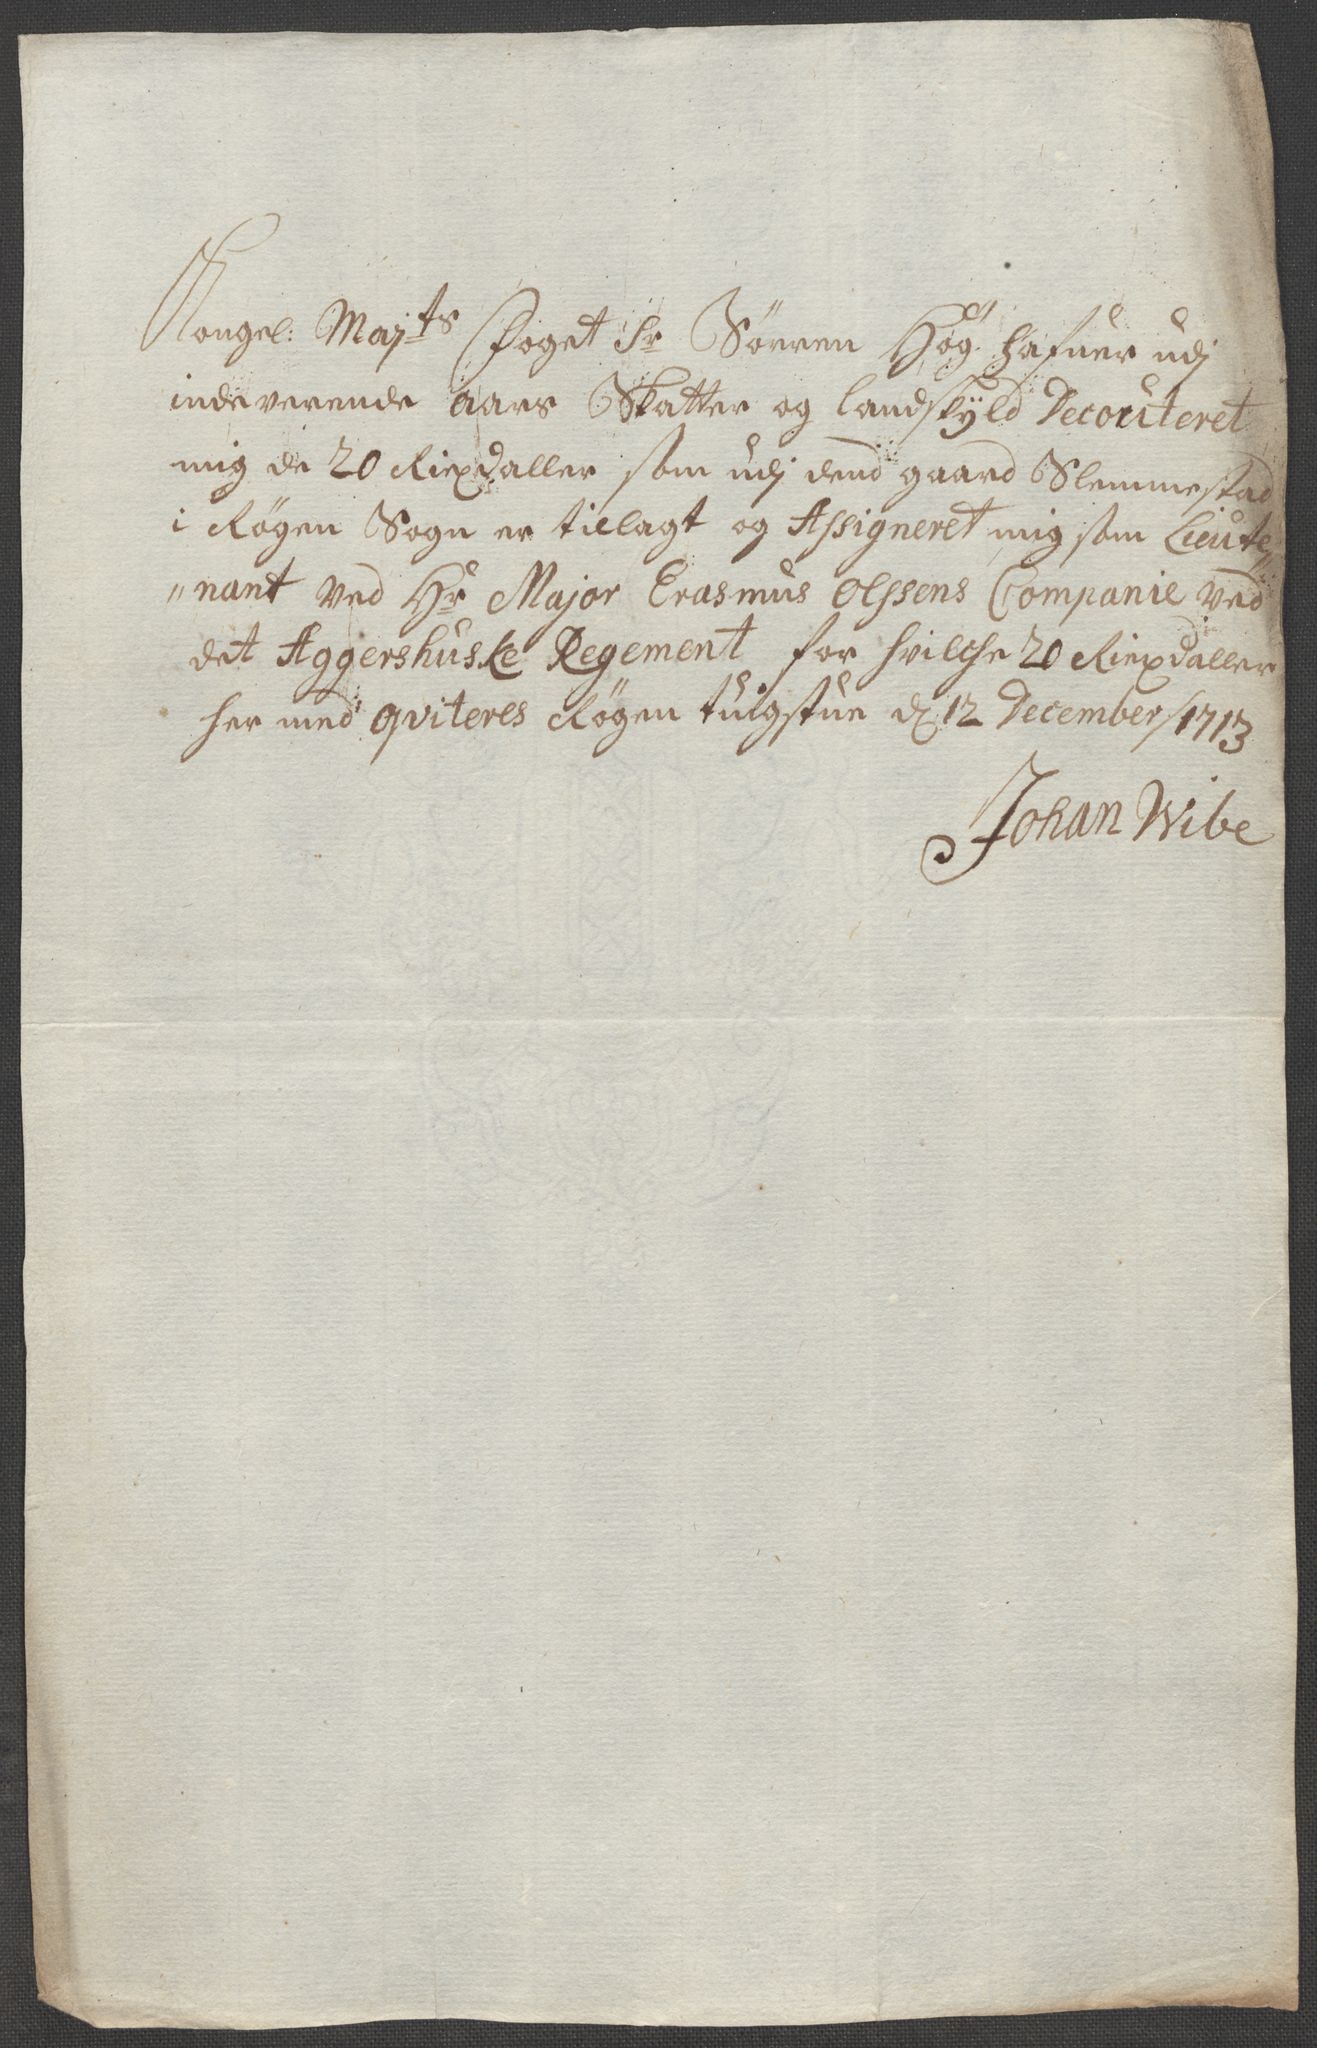 Kongel: Maj^ts Foget Sr Sörren Höÿ hafuer udj
indeverende aars Skatter og landskÿld Decorteret
mig de 20 Rixdaller som udj dend gaard Slemmestad
i Røgen Sogn er tillagt og Assigneret mig som Lieute
"nant ved Hr Major Erasmus Olssens Companie ved
det Aggershuske Regement for hvilche 20 Rixdaller
her med qviteres Røgen tingstue d 12 December/1713
Johan Wibe